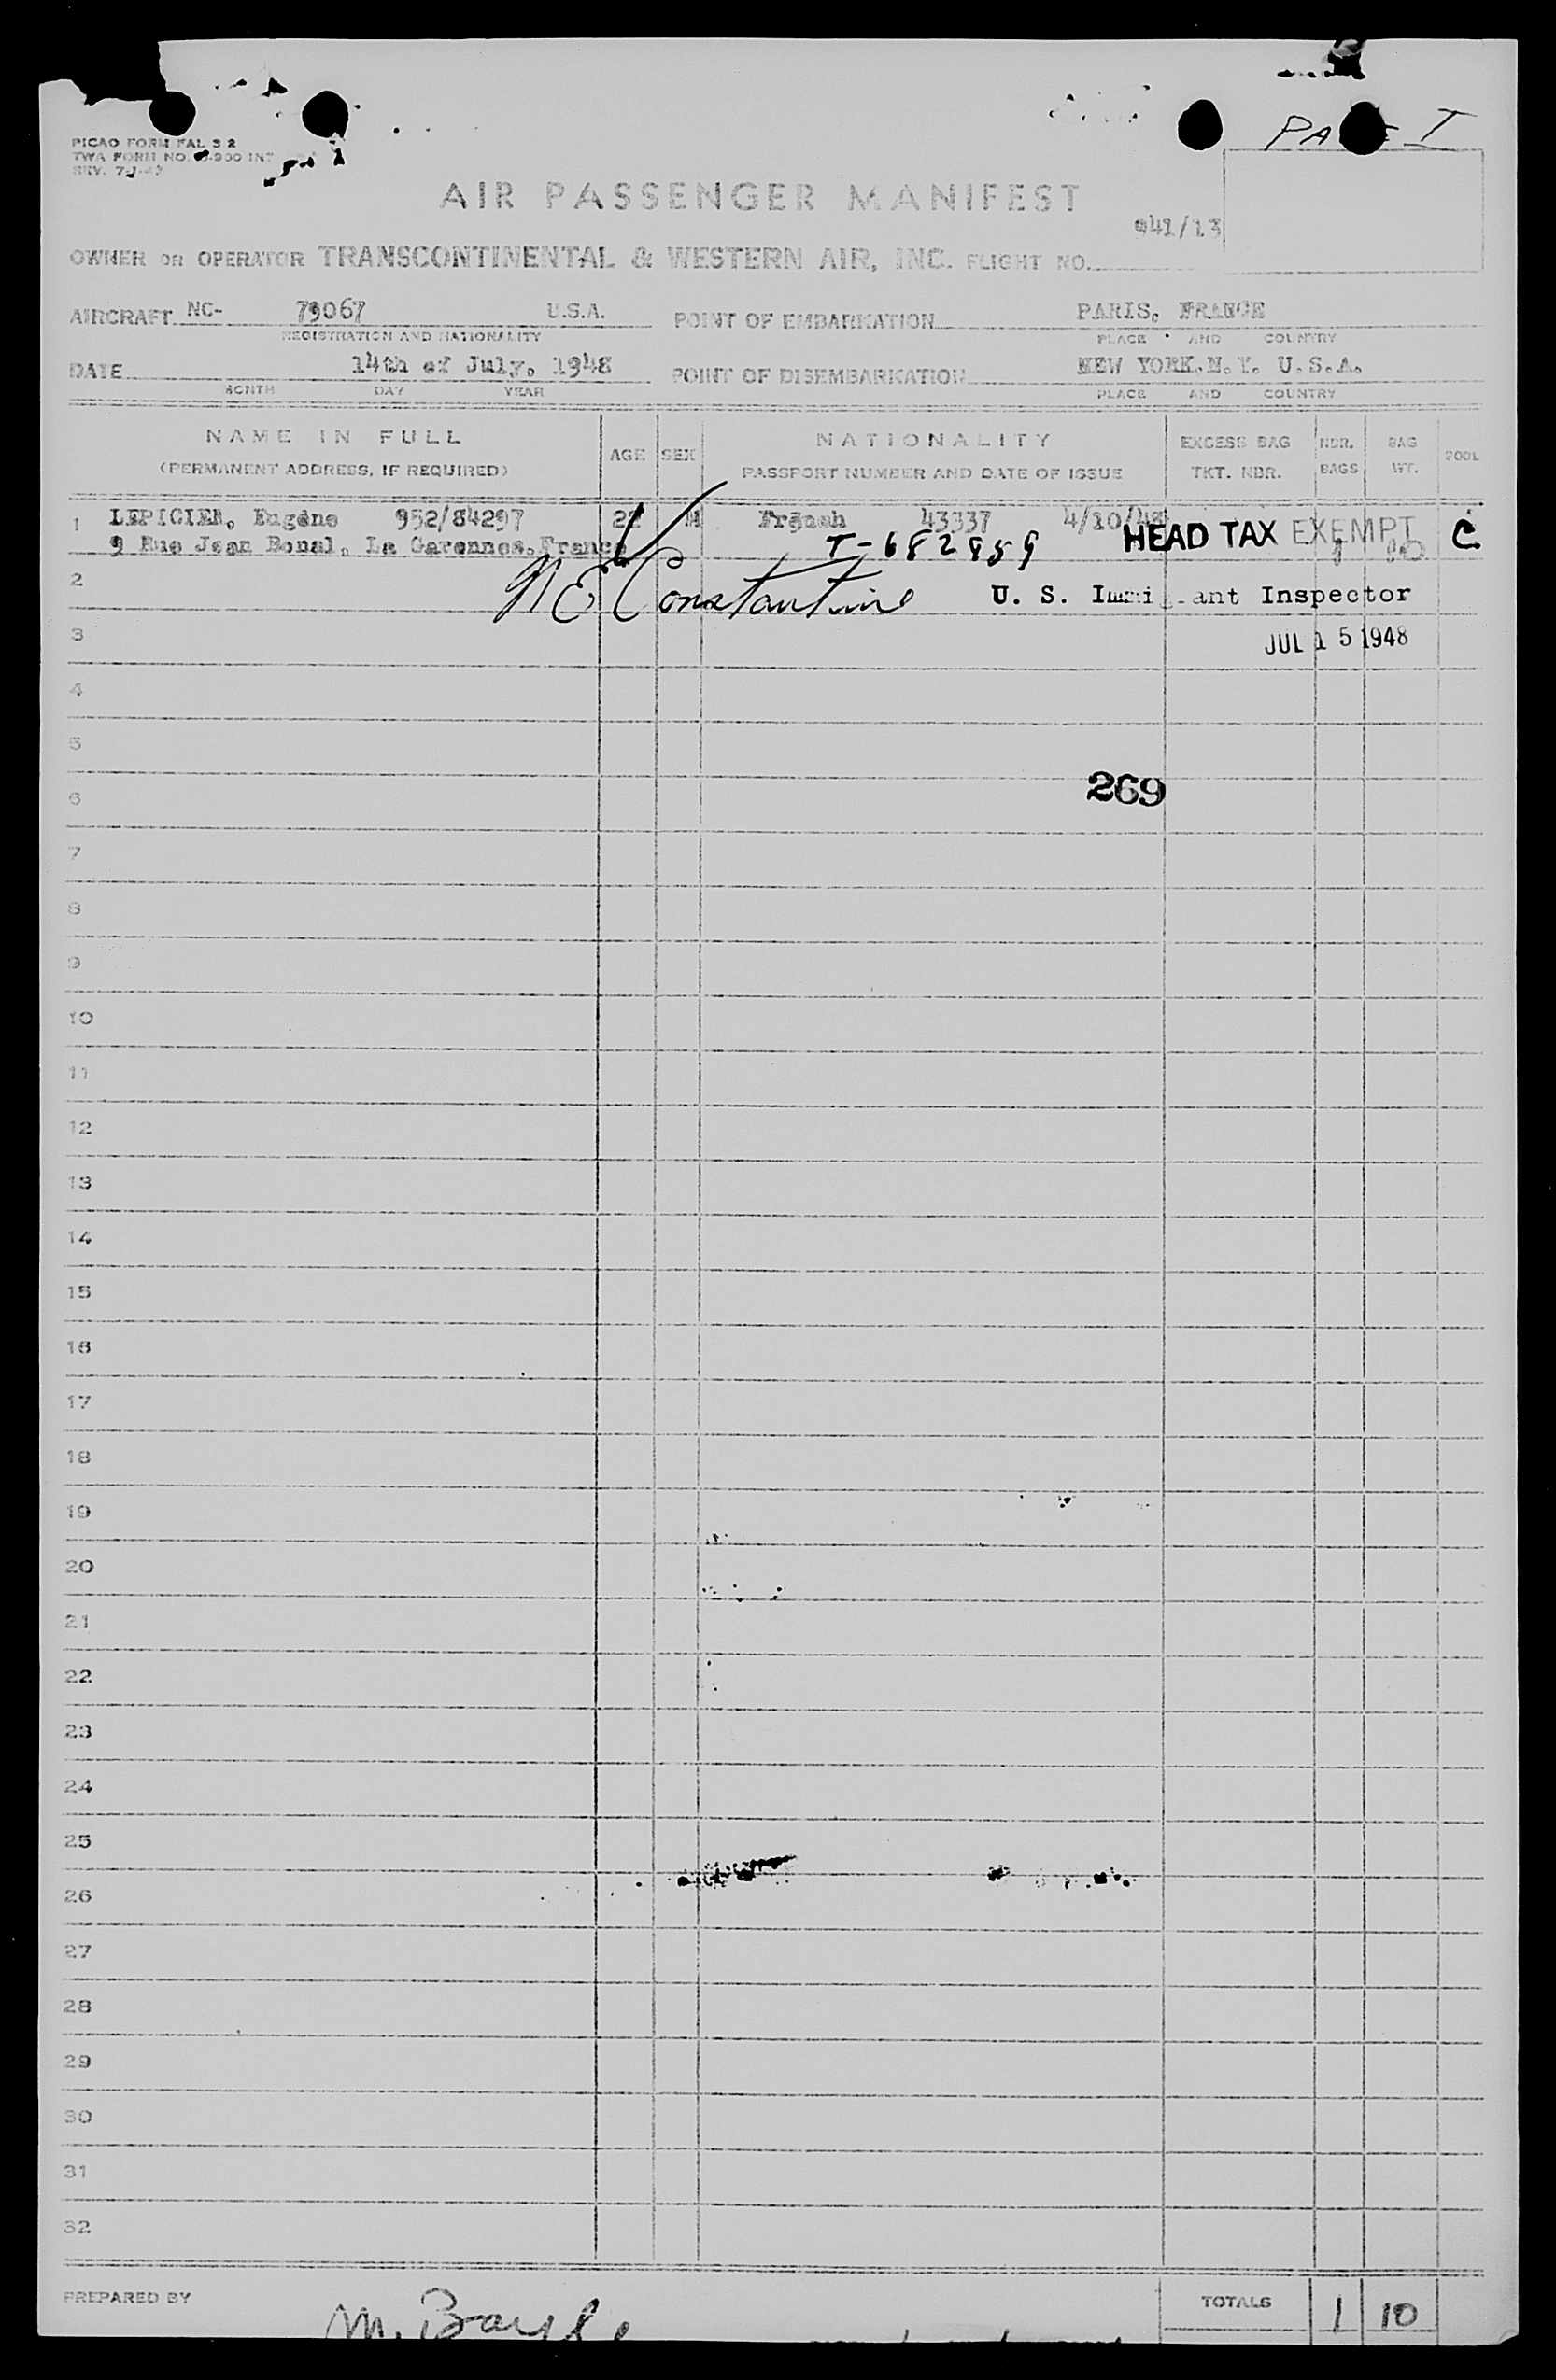 PAGE I
PICAO FORM FAL 3 2
TWA FORM NO. -900 INT
REV. 7-1-47
AIR PASSENGER MANIFEST
941/13
OWNER OR OPERATOR TRANSCONTINENTAL & WESTERN AIR, INC. FLIGHT NO.
AIRCRAFT NC- 79067 U.S.A. POINT OF EMBARKATION PARIS, FRANCE
REGISTRATION AND NATIONALITY PLACE AND COUNTRY
DATE 14th of July, 1948 POINT OF DISEMBARKATION NEW YORK.N.Y. U.S.A.
MONTH DAY YEAR PLACE AND COUNTRY
NAME IN FULL AGE SEX NATIONALITY EXCESS BAG NBR. BAG POOL
(PERMANENT ADDRESS, IF REQUIRED) PASSPORT NUMBER AND DATE OF ISSUE TKT. NBR. BAGS WT.
1 LEPICIER, Eugène 952/84297 22 M French 43337 4/10/48
9 Rue Jean Bonal, La Garennes,France T-682859 HEAD TAX EXEMPT C
2 N E Constantine U. S. Immigrant Inspector
3 JUL 15 1948
4
5
6 269
7
8
9
10
11
12
13
14
15
16
17
18
19
20
21
22
23
24
25
26
27
28
29
30
31
32
PREPARED BY M. TOTALS 1 10